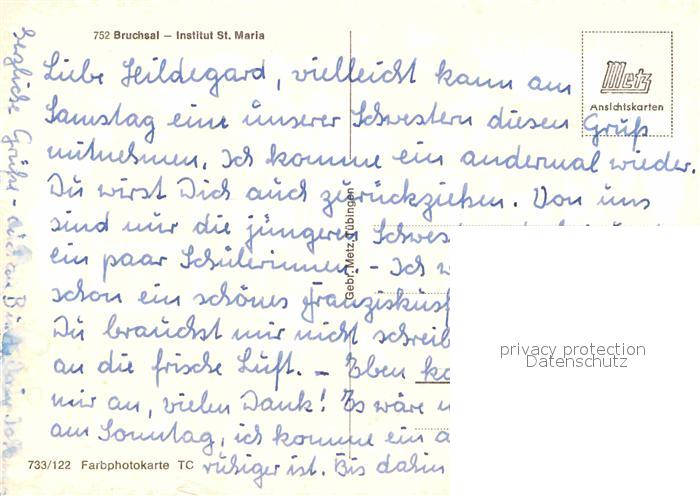 752 Bruchsal – Institut St. Maria
Metz
Ansichtskarten
Liebe Hildegard, vielleicht kann am
Samstag eine unserer Schwestern diesen Gruß
mitnehmen. Ich komme ein andermal wieder.
Du wirst Dich auch zurückziehen. Von uns
sind nur die jüngeren Schwes
ein paar Schülerinnen. - Ich w
schon ein schönes Franziskusf
Du brauchst mir nicht schreib
an die frische Luft. – Eben ko
mir an, vielen Dank! Es wäre
am Sonntag, ich komme ein a
ruhiger ist. Bis dahin
herzliche Grüße - auch an
Gebr. Metz, Tübingen
733/122 Farbphotokarte TC
privacy protection
Datenschutz